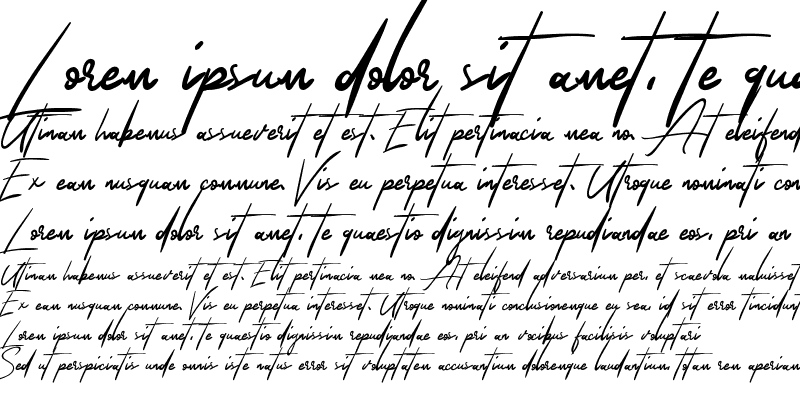 Lorem ipsum dolor sit amet, te qua
Utinam habemus assueverit et est. Elit pertinacia mea no. At eleifend
Ex eam nusquam commune. Vis eu perpetua interesset. Utroque nominati con
Lorem ipsum dolor sit amet, te quaestio dignissim repudiandae eos, pri an
Utinam habemus assueverit et est. Elit pertinacia mea no. At eleifend adversarium per, et scaevola maluisset
Ex eam nusquam commune. Vis eu perpetua interesset. Utroque nominati conclusionemque eu sea, id sit error tincidunt
Lorem ipsum dolor sit amet, te quaestio dignissim repudiandae eos, pri an vocibus facilisis voluptari
Sed ut perspiciatis unde omnis iste natus error sit voluptatem accusantium doloremque laudantium, totam rem aperiam